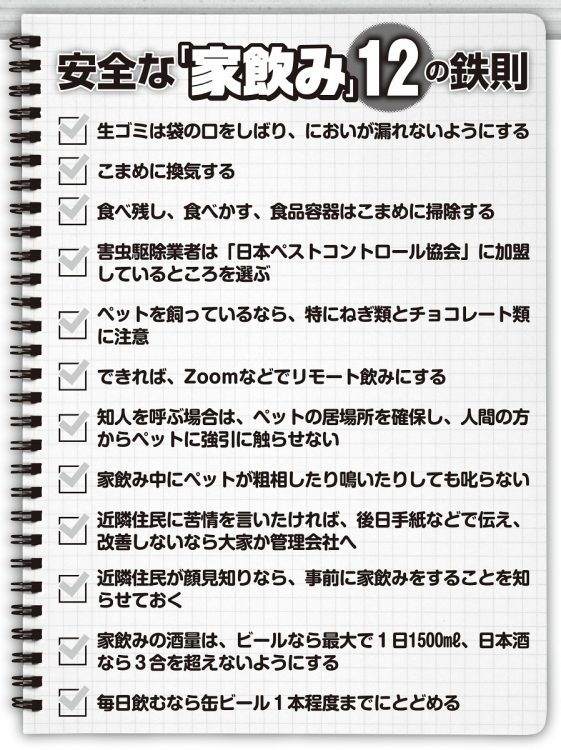 安全な「家飲み」12の鉄則
生ゴミは袋の口をしばり、においが漏れないようにする
こまめに換気する
食べ残し、食べかす、食品容器はこまめに掃除する
害虫駆除業者は「日本ペストコントロール協会」に加盟
しているところを選ぶ
ペットを飼っているなら、特にねぎ類とチョコレート類
に注意
できれば、Zoomなどでリモート飲みにする
知人を呼ぶ場合は、ペットの居場所を確保し、人間の方
からペットに強引に触らせない
家飲み中にペットが粗相したり鳴いたりしても叱らない
近隣住民に苦情を言いたければ、後日手紙などで伝え、
改善しないなら大家か管理会社へ
近隣住民が顔見知りなら、事前に家飲みをすることを知
らせておく
家飲みの酒量は、ビールなら最大で1日1500㎖、日本酒
なら3合を超えないようにする
毎日飲むなら缶ビール1本程度までにとどめる